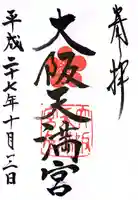 奉拝
大阪天満宮
平成二十七年十月二日